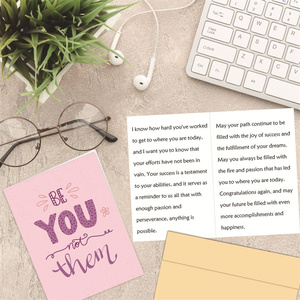 BE
YOU
not
them
I know how hard you've worked
to get to where you are today,
and I want you to know that
your efforts have not been in
vain. Your success is a testament
to your abilities, and it serves as
a reminder to us all that with
enough passion and
perseverance, anything is
possible.
May your path continue to be
filled with the joy of success and
the fulfillment of your dreams.
May you always be filled with
the fire and passion that has led
you to where you are today.
Congratulations again, and may
your future be filled with even
more accomplishments and
happiness.